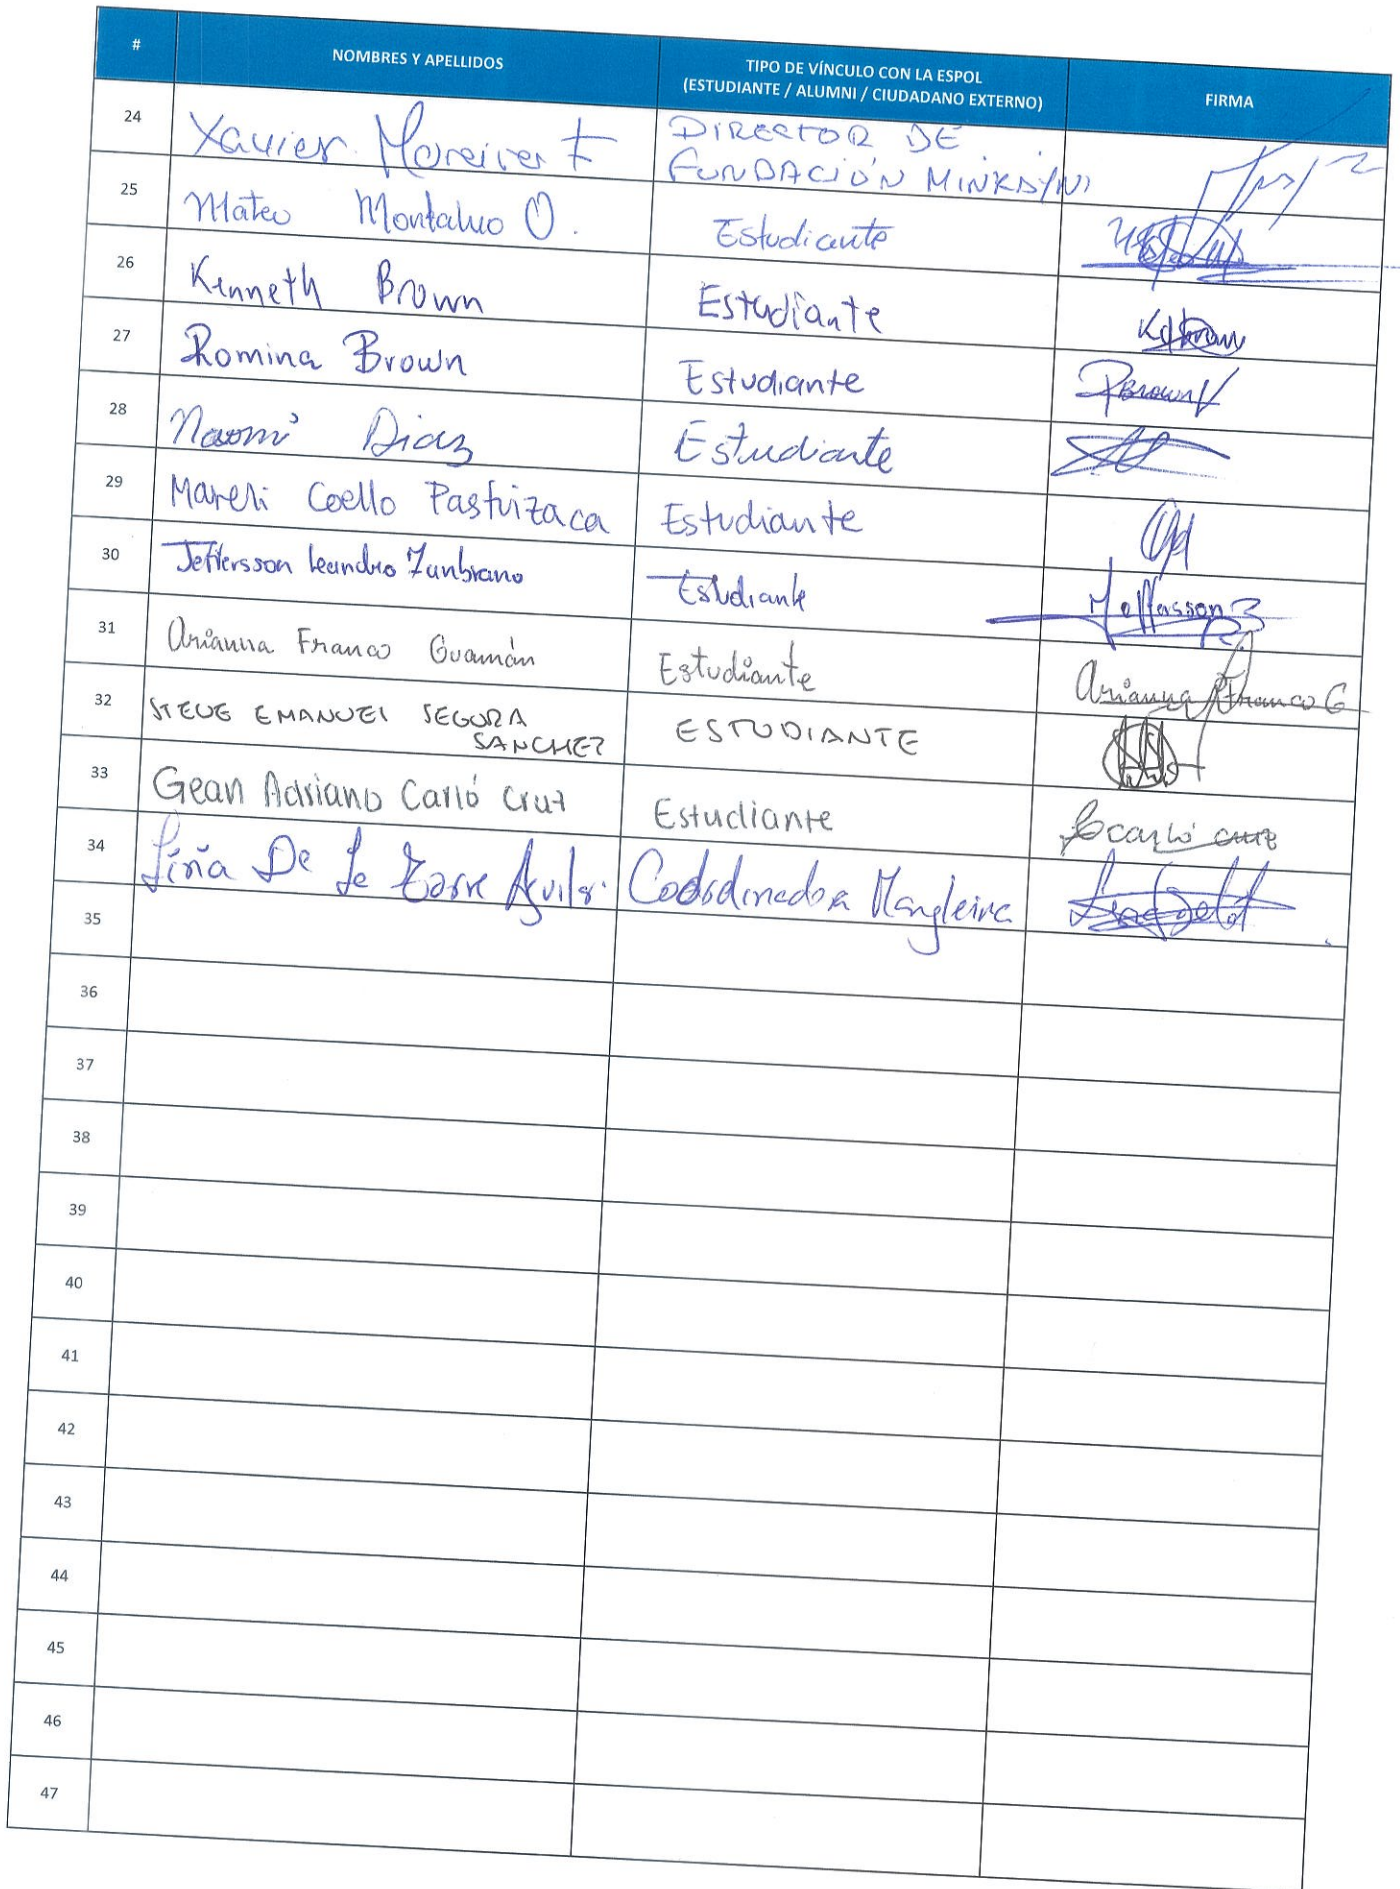 # NOMBRES Y APELLIDOS TIPO DE VÍNCULO CON LA ESPOL (ESTUDIANTE / ALUMNI / CIUDADANO EXTERNO) FIRMA
24 Xavier Moreira F DIRECTOR DE
FUNDACIÓN MINKAYNI
25 Mateo Montalvo O. Estudiante
26 Kenneth Brown Estudiante
27 Romina Brown Estudiante RBrown
28 Naomi Diaz Estudiante
29 Mareli Coello Pastuizaca Estudiante
30 Jeffersson Leandro Zambrano Estudiante
31 Arianna Franco Guamán Estudiante Arianna Franco G
32 STEVE EMANUEL SEGURA
SANCHEZ ESTUDIANTE
33 Gean Adriano Carló Cruz Estudiante
34 De La Torre Aguilar Coordinadora Mangleira
35
36
37
38
39
40
41
42
43
44
45
46
47